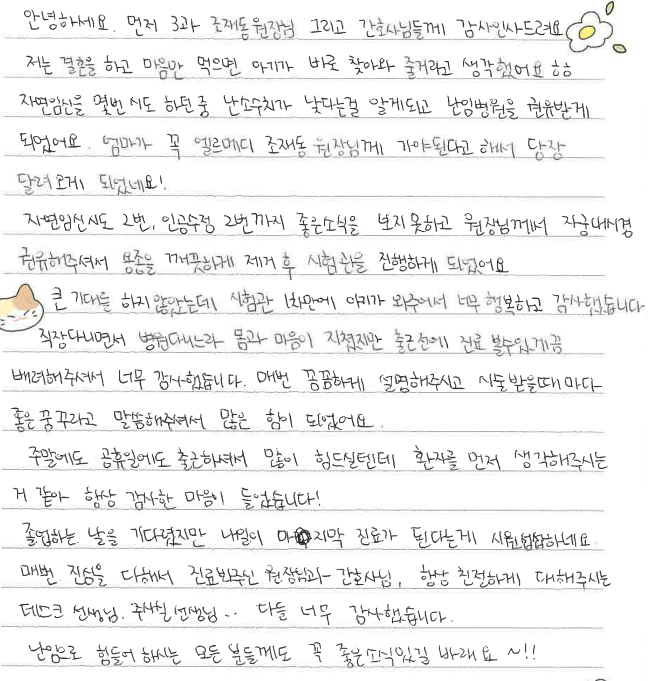 안녕하세요. 먼저 3과 조재동 원장님 그리고 간호사님들께 감사인사드려요
저는 결혼을 하고 마음만 먹으면 아기가 바로 찾아와 줄거라고 생각했어요 ㅎㅎ
자연임신을 몇번 시도 하던 중 난소수치가 낮다는걸 알게되고 난임병원을 권유받게
되었어요. 엄마가 꼭 엘르메디 조재동 원장님께 가야된다고 해서 당장
달려오게 되었네요!
자연임신시도 2번, 인공수정 2번까지 좋은소식을 보지 못하고 원장님께서 자궁내시경
권유해주셔서 용종을 깨끗하게 제거 후 시험관을 진행하게 되었어요
큰 기대를 하지 않았는데 시험관 1차만에 아기가 와주어서 너무 행복하고 감사했습니다
직장다니면서 병원다니느라 몸과 마음이 지쳤지만 출근전에 진료 볼수있게끔
배려해주셔서 너무 감사했습니다. 매번 꼼꼼하게 설명해주시고 시술받을때마다
좋은꿈꾸라고 말씀해주셔서 많은 힘이 되었어요.
주말에도 공휴일에도 출근하셔서 많이 힘드실텐데 환자를 먼저 생각해주시는
거 같아 항상 감사한 마음이 들었습니다!
졸업하는 날을 기다렸지만 내일이 마지막 진료가 된다는게 시원섭섭하네요.
매번 진심을 다해서 진료봐주신 원장님과 간호사님, 항상 친절하게 대해주시는
데스크 선생님, 주사실 선생님.. 다들 너무 감사했습니다.
난임으로 힘들어 하시는 모든 분들께도 꼭 좋은소식있길 바래요 ~!!